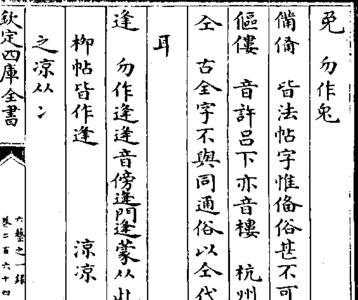 免 勿作兔
備俻 皆法帖字惟俻俗甚不可
傴僂 音許呂下亦音樓 杭州
仝 古全字不與同通俗以仝代
耳
逢 勿作逄逄音傍逄門逄蒙从此
柳帖皆作逄 涼凉
之凉从冫
欽定四庫全書
六藝之一録
卷二百六十四